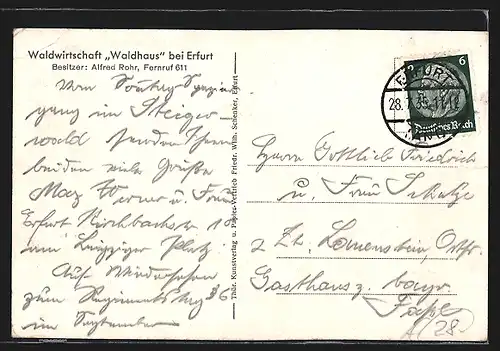 Waldwirtschaft „Waldhaus" bei Erfurt
Besitzer: Alfred Rohr, Fernruf 611
Vom Sonntag-Spazier
gang im Steiger
wald senden Ihnen
beiden viele Grüße
Max Werner u. Frau
Erfurt, Kirchbachstr 10
am Leipziger Platz.
Auf Wiedersehen
zum Regimentstag 36
im September
Thür. Kunstverlag u. Papier-Vertrieb Friedr. Wilh. Schenker, Erfurt
6
ERFURT
28.
Deutsches Reich
Herrn Gottlieb Friedrich
u. Frau
z. Zt. Lauenstein, Ostfr.
Gasthaus z. bayr.
28